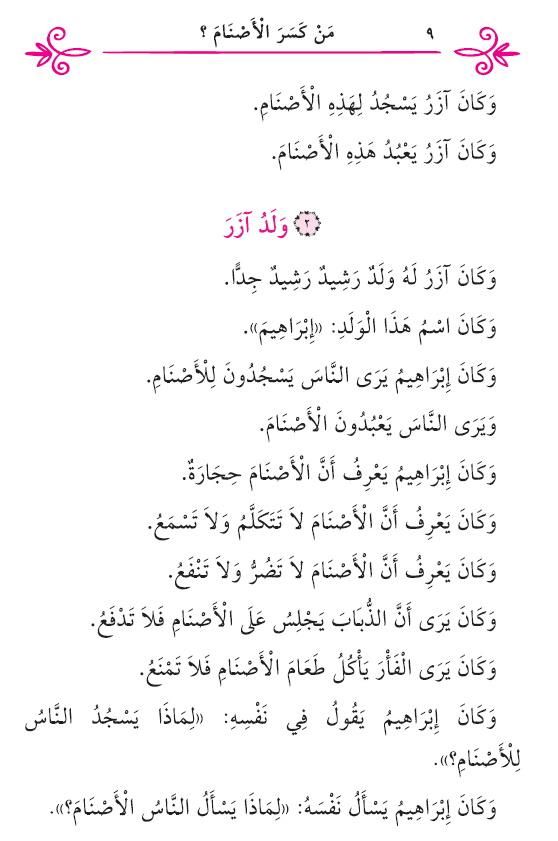 ٩ مَنْ كَسَرَ الْأَصْنَامَ ؟
وَكَانَ آزَرُ يَسْجُدُ لِهَذِهِ الْأَصْنَامِ.
وَكَانَ آزَرُ يَعْبُدُ هَذِهِ الْأَصْنَامَ.
٢ وَلَدُ آزَرَ
وَكَانَ آزَرُ لَهُ وَلَدٌ رَشِيدٌ رَشِيدٌ جِدًّا.
وَكَانَ اسْمُ هَذَا الْوَلَدِ: «إِبْرَاهِيمَ».
وَكَانَ إِبْرَاهِيمُ يَرَى النَّاسَ يَسْجُدُونَ لِلْأَصْنَامِ.
وَيَرَى النَّاسَ يَعْبُدُونَ الْأَصْنَامَ.
وَكَانَ إِبْرَاهِيمُ يَعْرِفُ أَنَّ الْأَصْنَامَ حِجَارَةٌ.
وَكَانَ يَعْرِفُ أَنَّ الْأَصْنَامَ لاَ تَتَكَلَّمُ وَلاَ تَسْمَعُ.
وَكَانَ يَعْرِفُ أَنَّ الْأَصْنَامَ لاَ تَضُرُّ وَلاَ تَنْفَعُ.
وَكَانَ يَرَى أَنَّ الذُّبَابَ يَجْلِسُ عَلَى الْأَصْنَامِ فَلاَ تَدْفَعُ.
وَكَانَ يَرَى الْفَأْرَ يَأْكُلُ طَعَامَ الْأَصْنَامِ فَلاَ تَمْنَعُ.
وَكَانَ إِبْرَاهِيمُ يَقُولُ فِي نَفْسِهِ: «لِمَاذَا يَسْجُدُ النَّاسُ
لِلْأَصْنَامِ؟».
وَكَانَ إِبْرَاهِيمُ يَسْأَلُ نَفْسَهُ: «لِمَاذَا يَسْأَلُ النَّاسُ الْأَصْنَامَ؟».